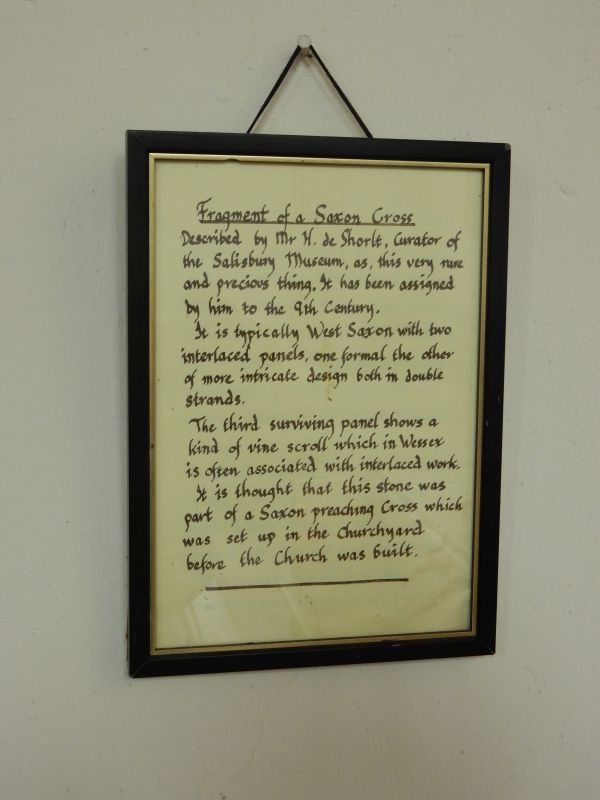 Fragment of a Saxon Cross
Described by Mr H. de Shorlt, Curator of
the Salisbury Museum, as, this very rare
and precious thing. It has been assigned
by him to the 9th Century.
It is typically West Saxon with two
interlaced panels, one formal the other
of more intricate design both in double
strands.
The third surviving panel shows a
kind of vine scroll which in Wessex
is often associated with interlaced work.
It is thought that this stone was
part of a Saxon preaching Cross which
was set up in the Churchyard
before the Church was built.